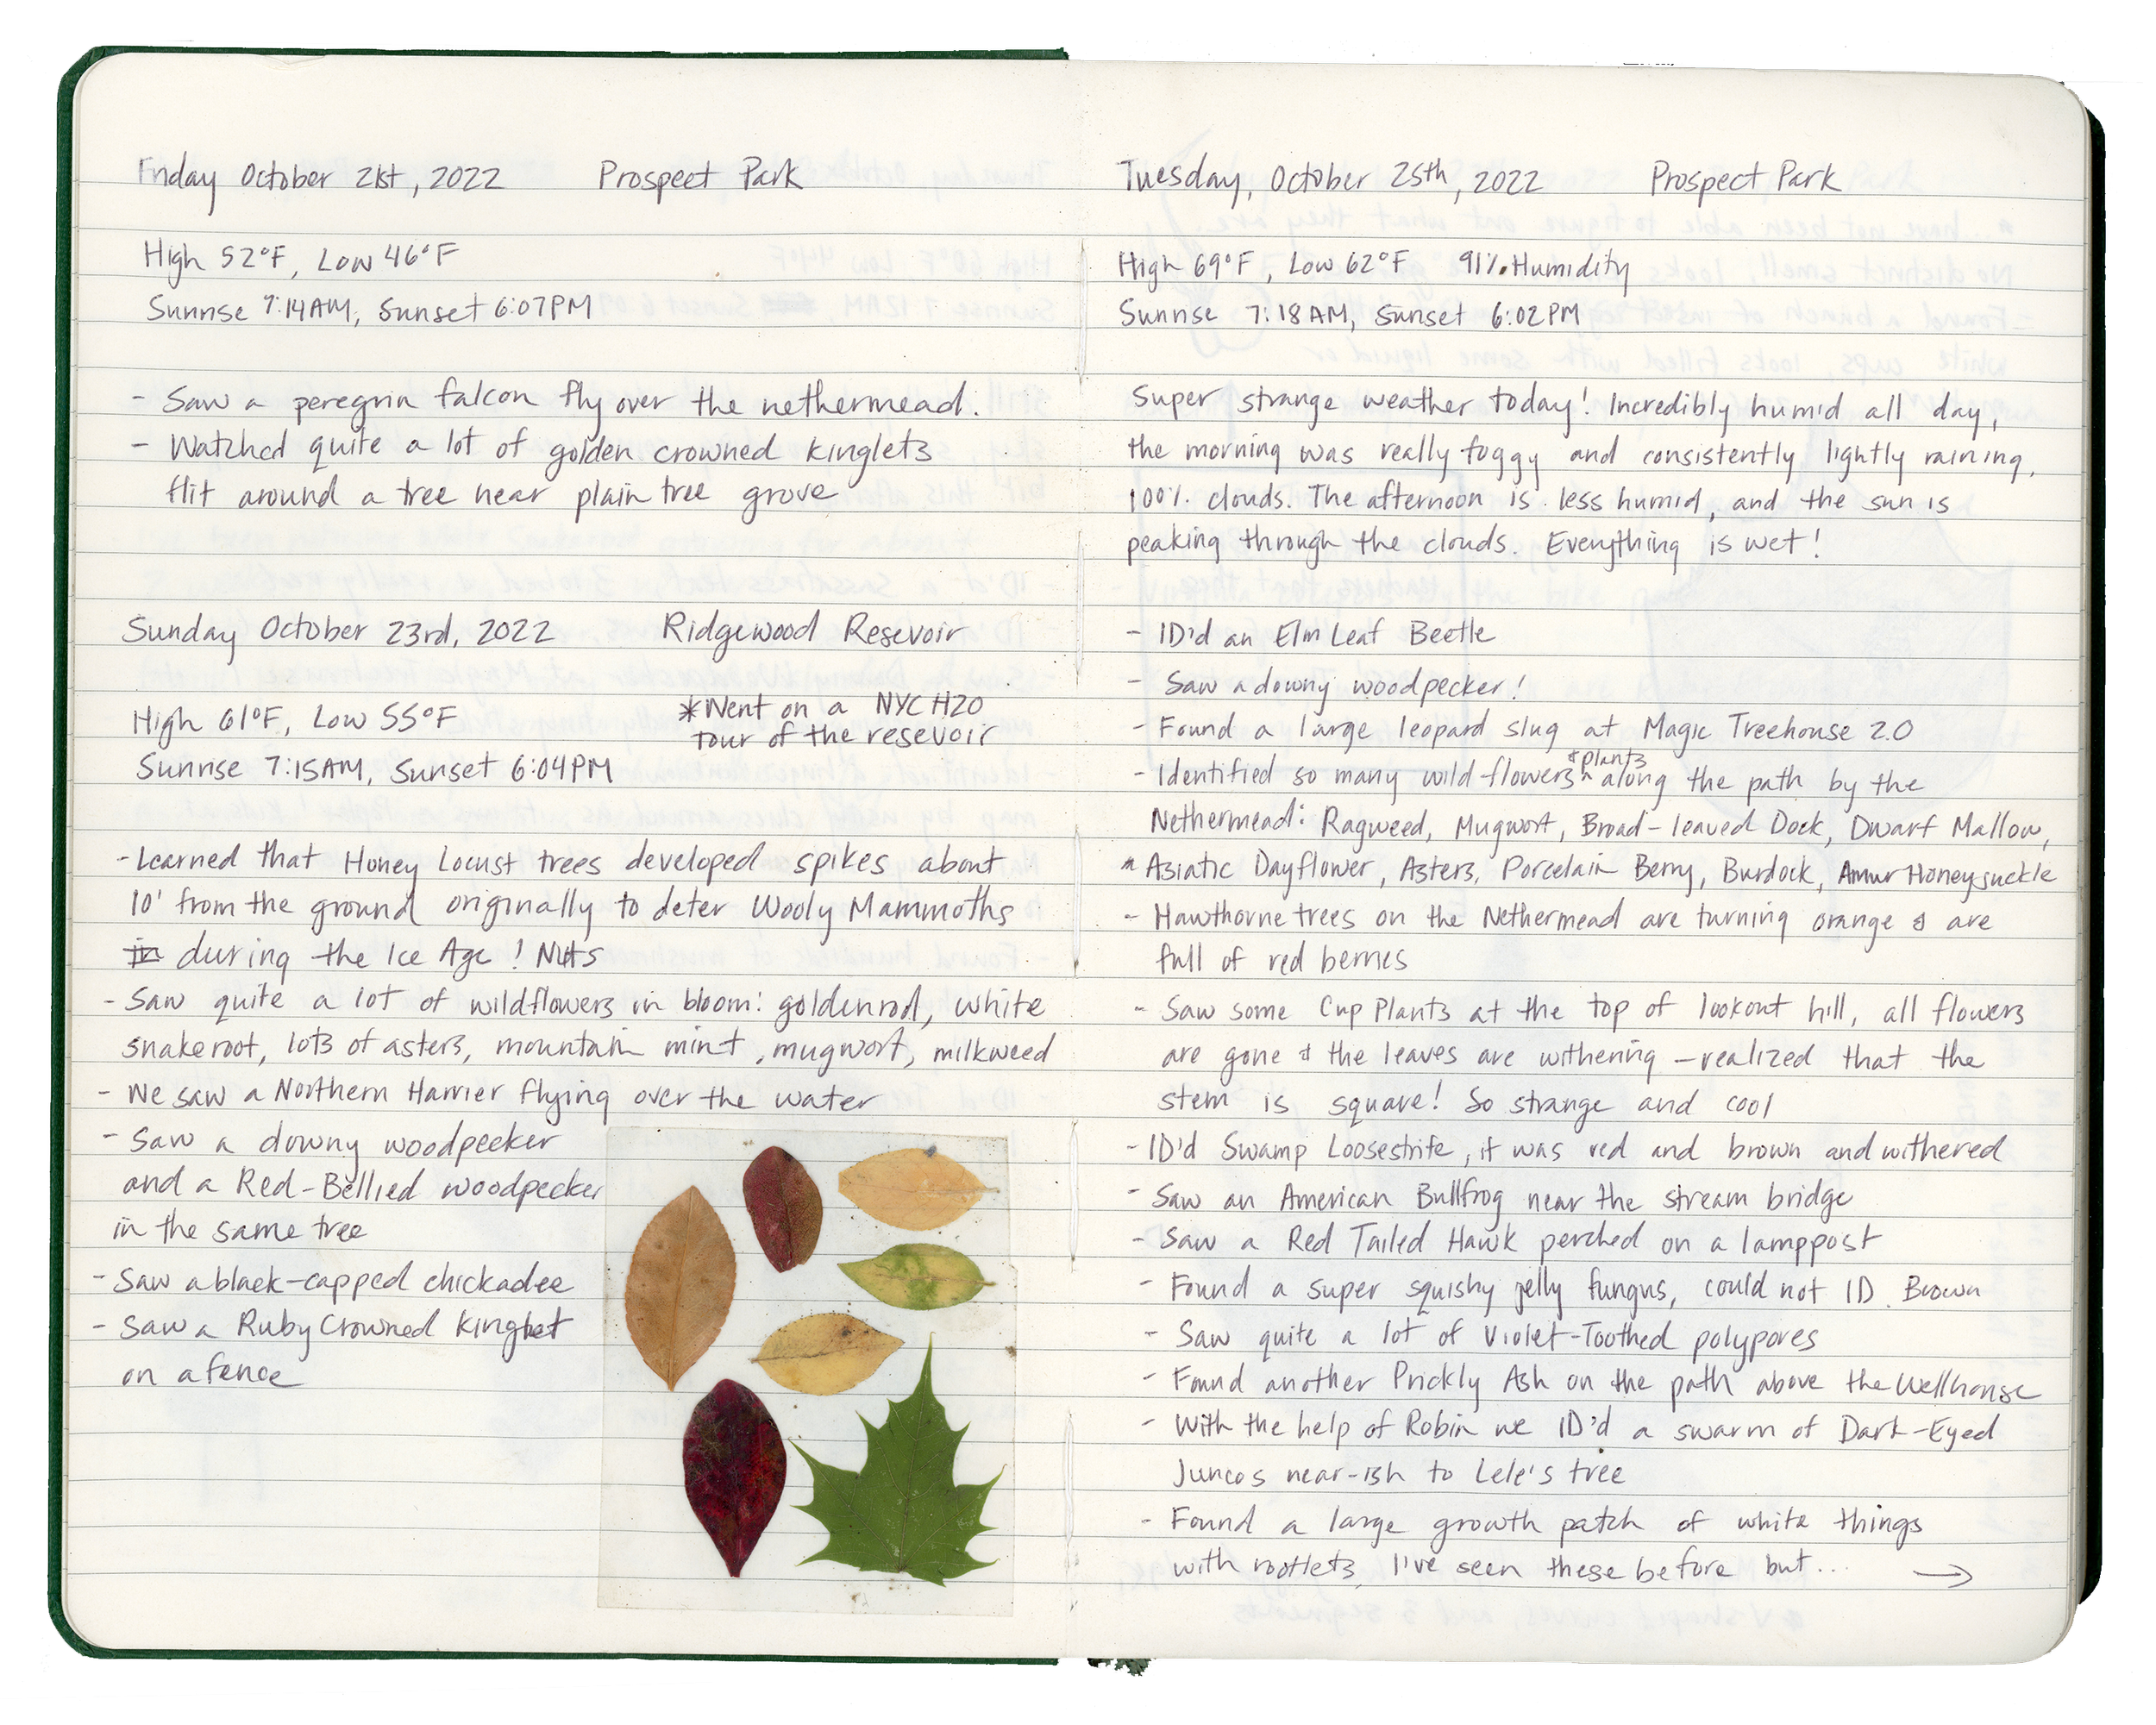 Friday October 21st, 2022 Prospect Park
High 52°F, Low 46°F
Sunrise 7:14AM, Sunset 6:07PM
- Saw a peregrin falcon fly over the nethermead.
- Watched quite a lot of golden crowned kinglets
flit around a tree near plain tree grove
Sunday October 23rd, 2022 Ridgewood Resevoir
*Went on a NYC H2O
tour of the resevoir
High 61°F, Low 55°F
Sunrise 7:15AM, Sunset 6:04PM
- Learned that Honey Locust trees developed spikes about
10' from the ground originally to deter Wooly Mammoths
in during the Ice Age! Nuts
- Saw quite a lot of wildflowers in bloom: goldenrod, white
snakeroot, lots of asters, mountain mint, mugwort, milkweed
- We saw a Northern Harrier flying over the water
- Saw a downy woodpecker
and a Red-Bellied woodpecker
in the same tree
- Saw a black-capped chickadee
- Saw a Ruby Crowned Kinglet
on a fence
Tuesday, October 25th, 2022 Prospect Park
High 69°F, Low 62°F 91%. Humidity
Sunrise 7:18AM, Sunset 6:02PM
Super strange weather today! Incredibly humid all day,
the morning was really foggy and consistently lightly raining,
100% clouds. The afternoon is less humid, and the sun is
peaking through the clouds. Everything is wet!
- ID'd an Elm Leaf Beetle
- Saw a downy woodpecker!
- Found a large leopard slug at Magic Treehouse 2.0
- Identified so many wild flowers & plants along the path by the
Nethermead: Ragweed, Mugwort, Broad-leaved Dock, Dwarf Mallow,
Asiatic Dayflower, Asters, Porcelain Berry, Burdock, Amur Honeysuckle
- Hawthorne trees on the Nethermead are turning orange & are
full of red berries
- Saw some Cup Plants at the top of lookout hill, all flowers
are gone & the leaves are withering - realized that the
stem is square! So strange and cool
- ID'd Swamp Loosestrife, it was red and brown and withered
- Saw an American Bullfrog near the stream bridge
- Saw a Red Tailed Hawk perched on a lamppost
- Found a super squishy jelly fungus, could not ID. Brown
- Saw quite a lot of Violet-Toothed polypores
- Found another Prickly Ash on the path above the Wellhouse
- With the help of Robin we ID'd a swarm of Dark-Eyed
Juncos near-ish to Lele's tree
- Found a large growth patch of white things
with rootlets, I've seen these before but... →